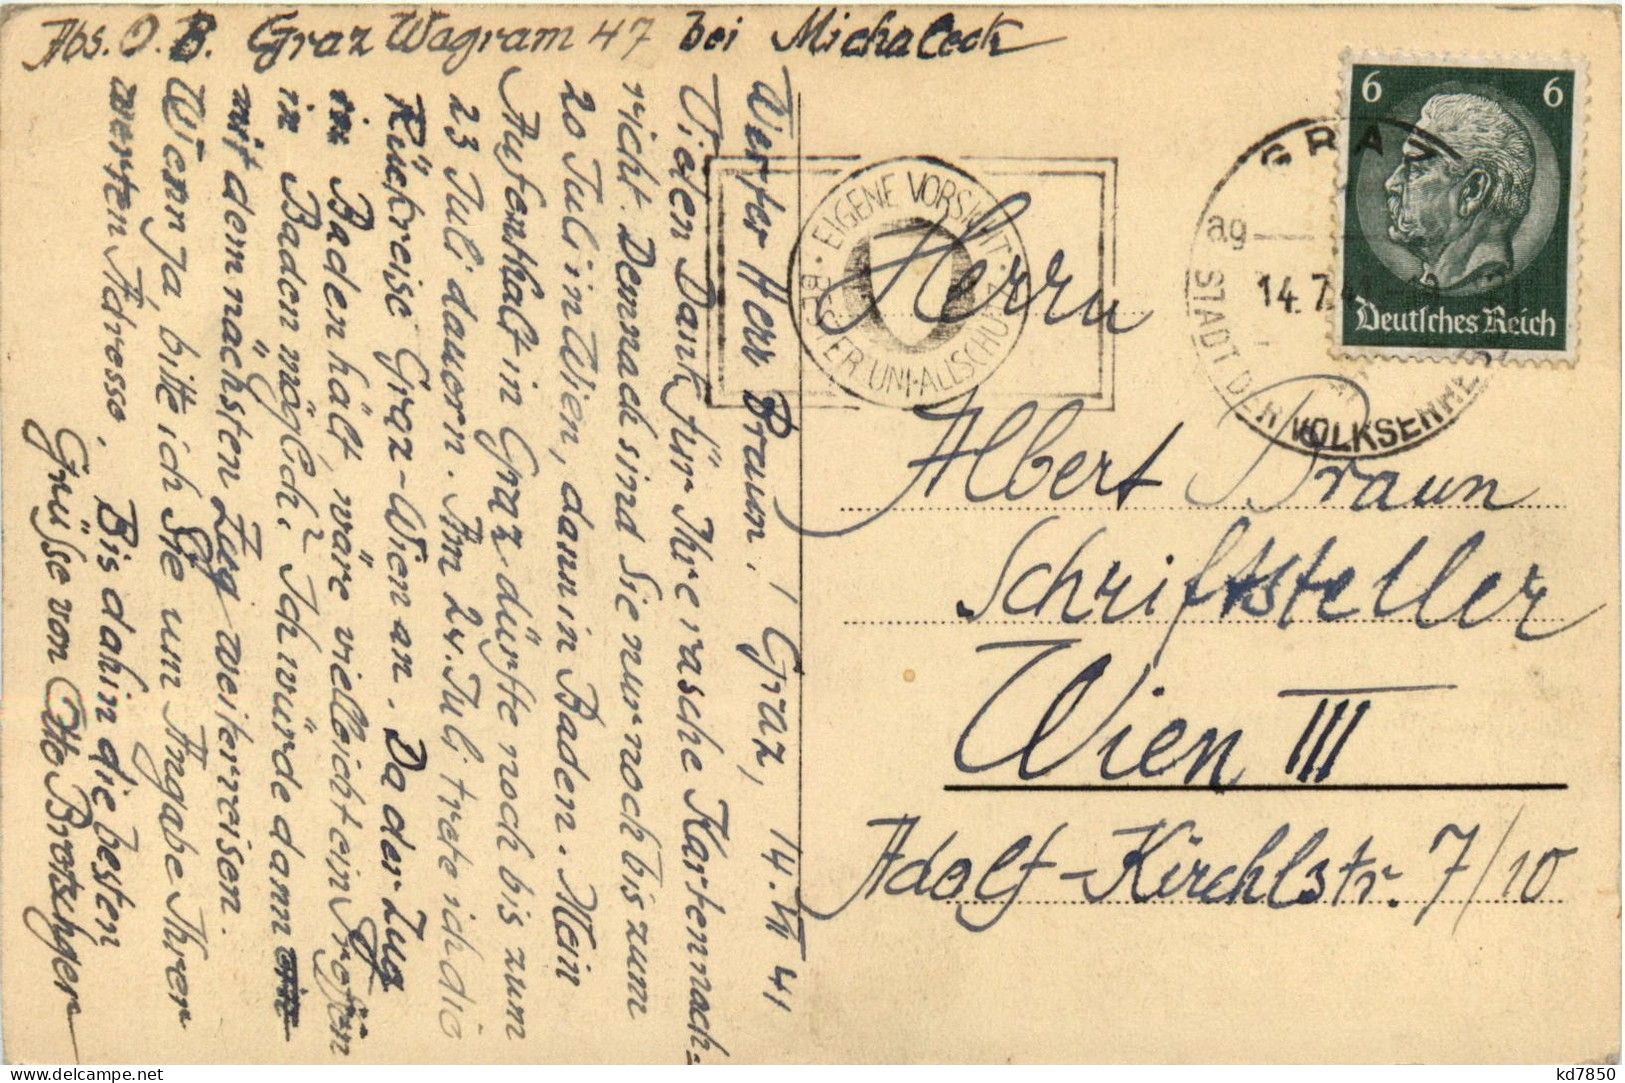 Abs. O. B. Graz Wagram 47 bei Michaleck
Graz, 14. VII 41
Werter Herr Braun!
Vielen Dank für Ihre rasche Kartennach=
richt. Demnach sind Sie nur noch bis zum
20 Juli in Wien, dann in Baden. Mein
Aufenthalt in Graz dürfte noch bis zum
23 Juli dauern. Am 24. Juli trete ich die
Rückreise Graz-Wien an. Da der Zug
in Baden hält, wäre vielleicht ein Treffen
in Baden möglich? Ich würde dann
mit dem nächsten Zug weiterreisen.
Wenn ja, bitte ich Sie um Angabe Ihrer
werten Adresse.
Bis dahin die besten
Grüsse von Otto Brotschger
EIGENE VORSICHT
BESTER UNFALLSCHUTZ
6 6
Deutsches Reich
GRAZ
ag
14.7.41
STADT DER VOLKSERHE
Herrn
Albert Braun
Schriftsteller
Wien III
Adolf-Kirchlstr. 7/10
kd7850